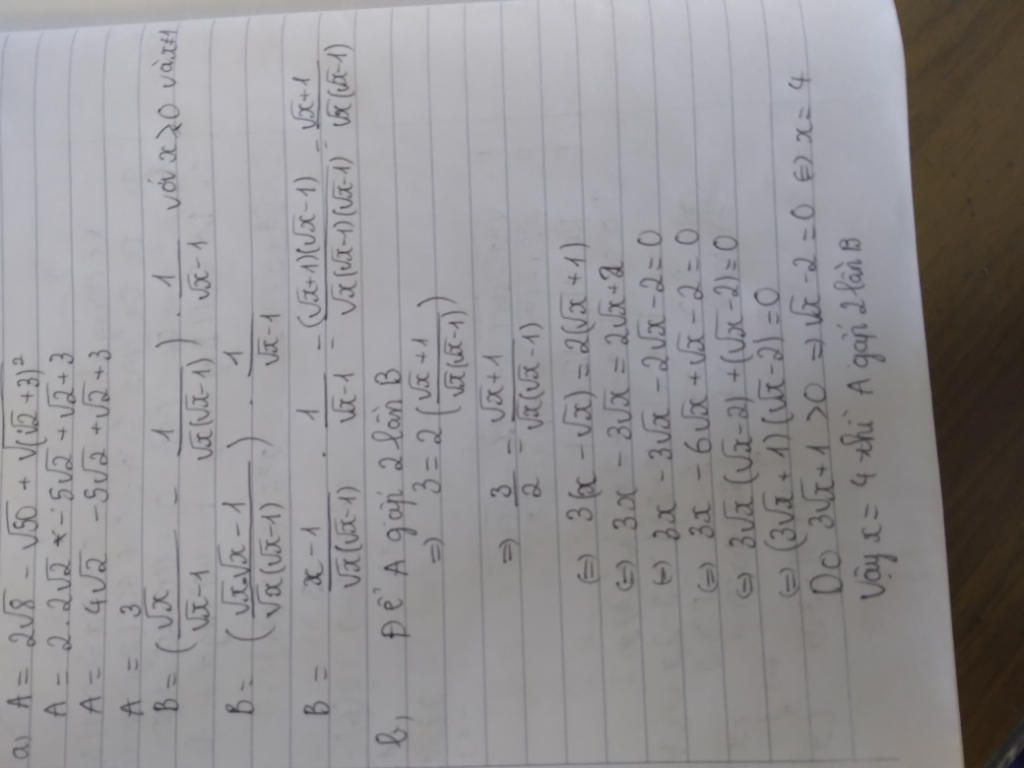 a) A = 2√8 - √50 + √(√2 + 3)²
A = 2.2√2 - 5√2 + √2 + 3
A = 4√2 - 5√2 + √2 + 3
A = 3
B = (√x/(√x-1) - 1/(√x(√x-1))) . 1/(√x-1) với x≥0 và x≠1
B = ((√x√x-1)/(√x(√x-1))) . 1/(√x-1)
B = (x-1)/(√x(√x-1)) . 1/(√x-1) = ((√x+1)(√x-1))/(√x(√x-1)(√x-1)) = (√x+1)/(√x(√x-1))
b, Để A gấp 2 lần B
=) 3 = 2((√x+1)/(√x(√x-1)))
=) 3/2 = (√x+1)/(√x(√x-1))
(=) 3(x - √x) = 2(√x+1)
(=) 3x - 3√x = 2√x+2
(=) 3x - 3√x - 2√x - 2 = 0
(=) 3x - 6√x + √x - 2 = 0
(=) 3√x(√x-2) + (√x-2) = 0
(=) (3√x+1)(√x-2) = 0
Do 3√x+1 >0 =) √x - 2 = 0 (=) x = 4
Vậy x = 4 thì A gấp 2 lần B